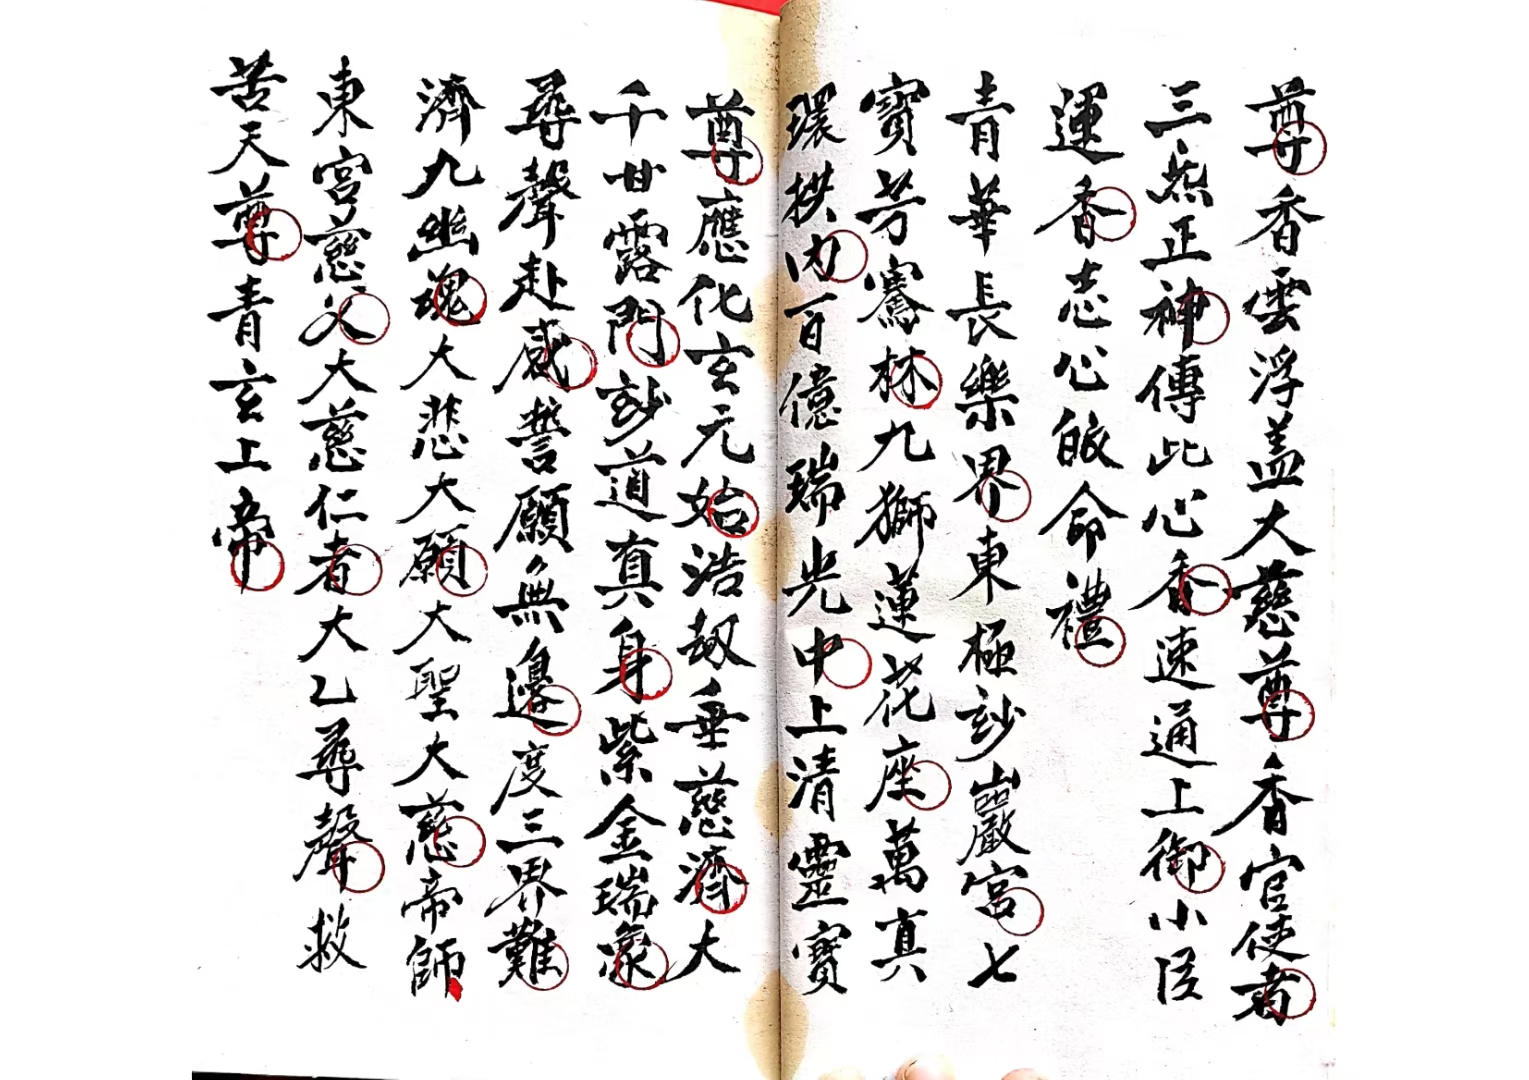 尊香雲浮盖大慈尊香官使者
三炁正神傳此心香速通上御小臣
運香志心皈命禮
青華長樂界東極玅嚴宮七
寳芳騫林九獅蓮花座萬真
環拱内百億瑞光中上清靈寳
尊應化玄元始浩刼垂慈濟大
千甘露門玅道真身紫金瑞像
尋聲赴感誓願無邊度三界難
濟九幽魂大悲大願大聖大慈帝師
東宮慈父大慈仁者大乙尋聲救
苦天尊青玄上帝